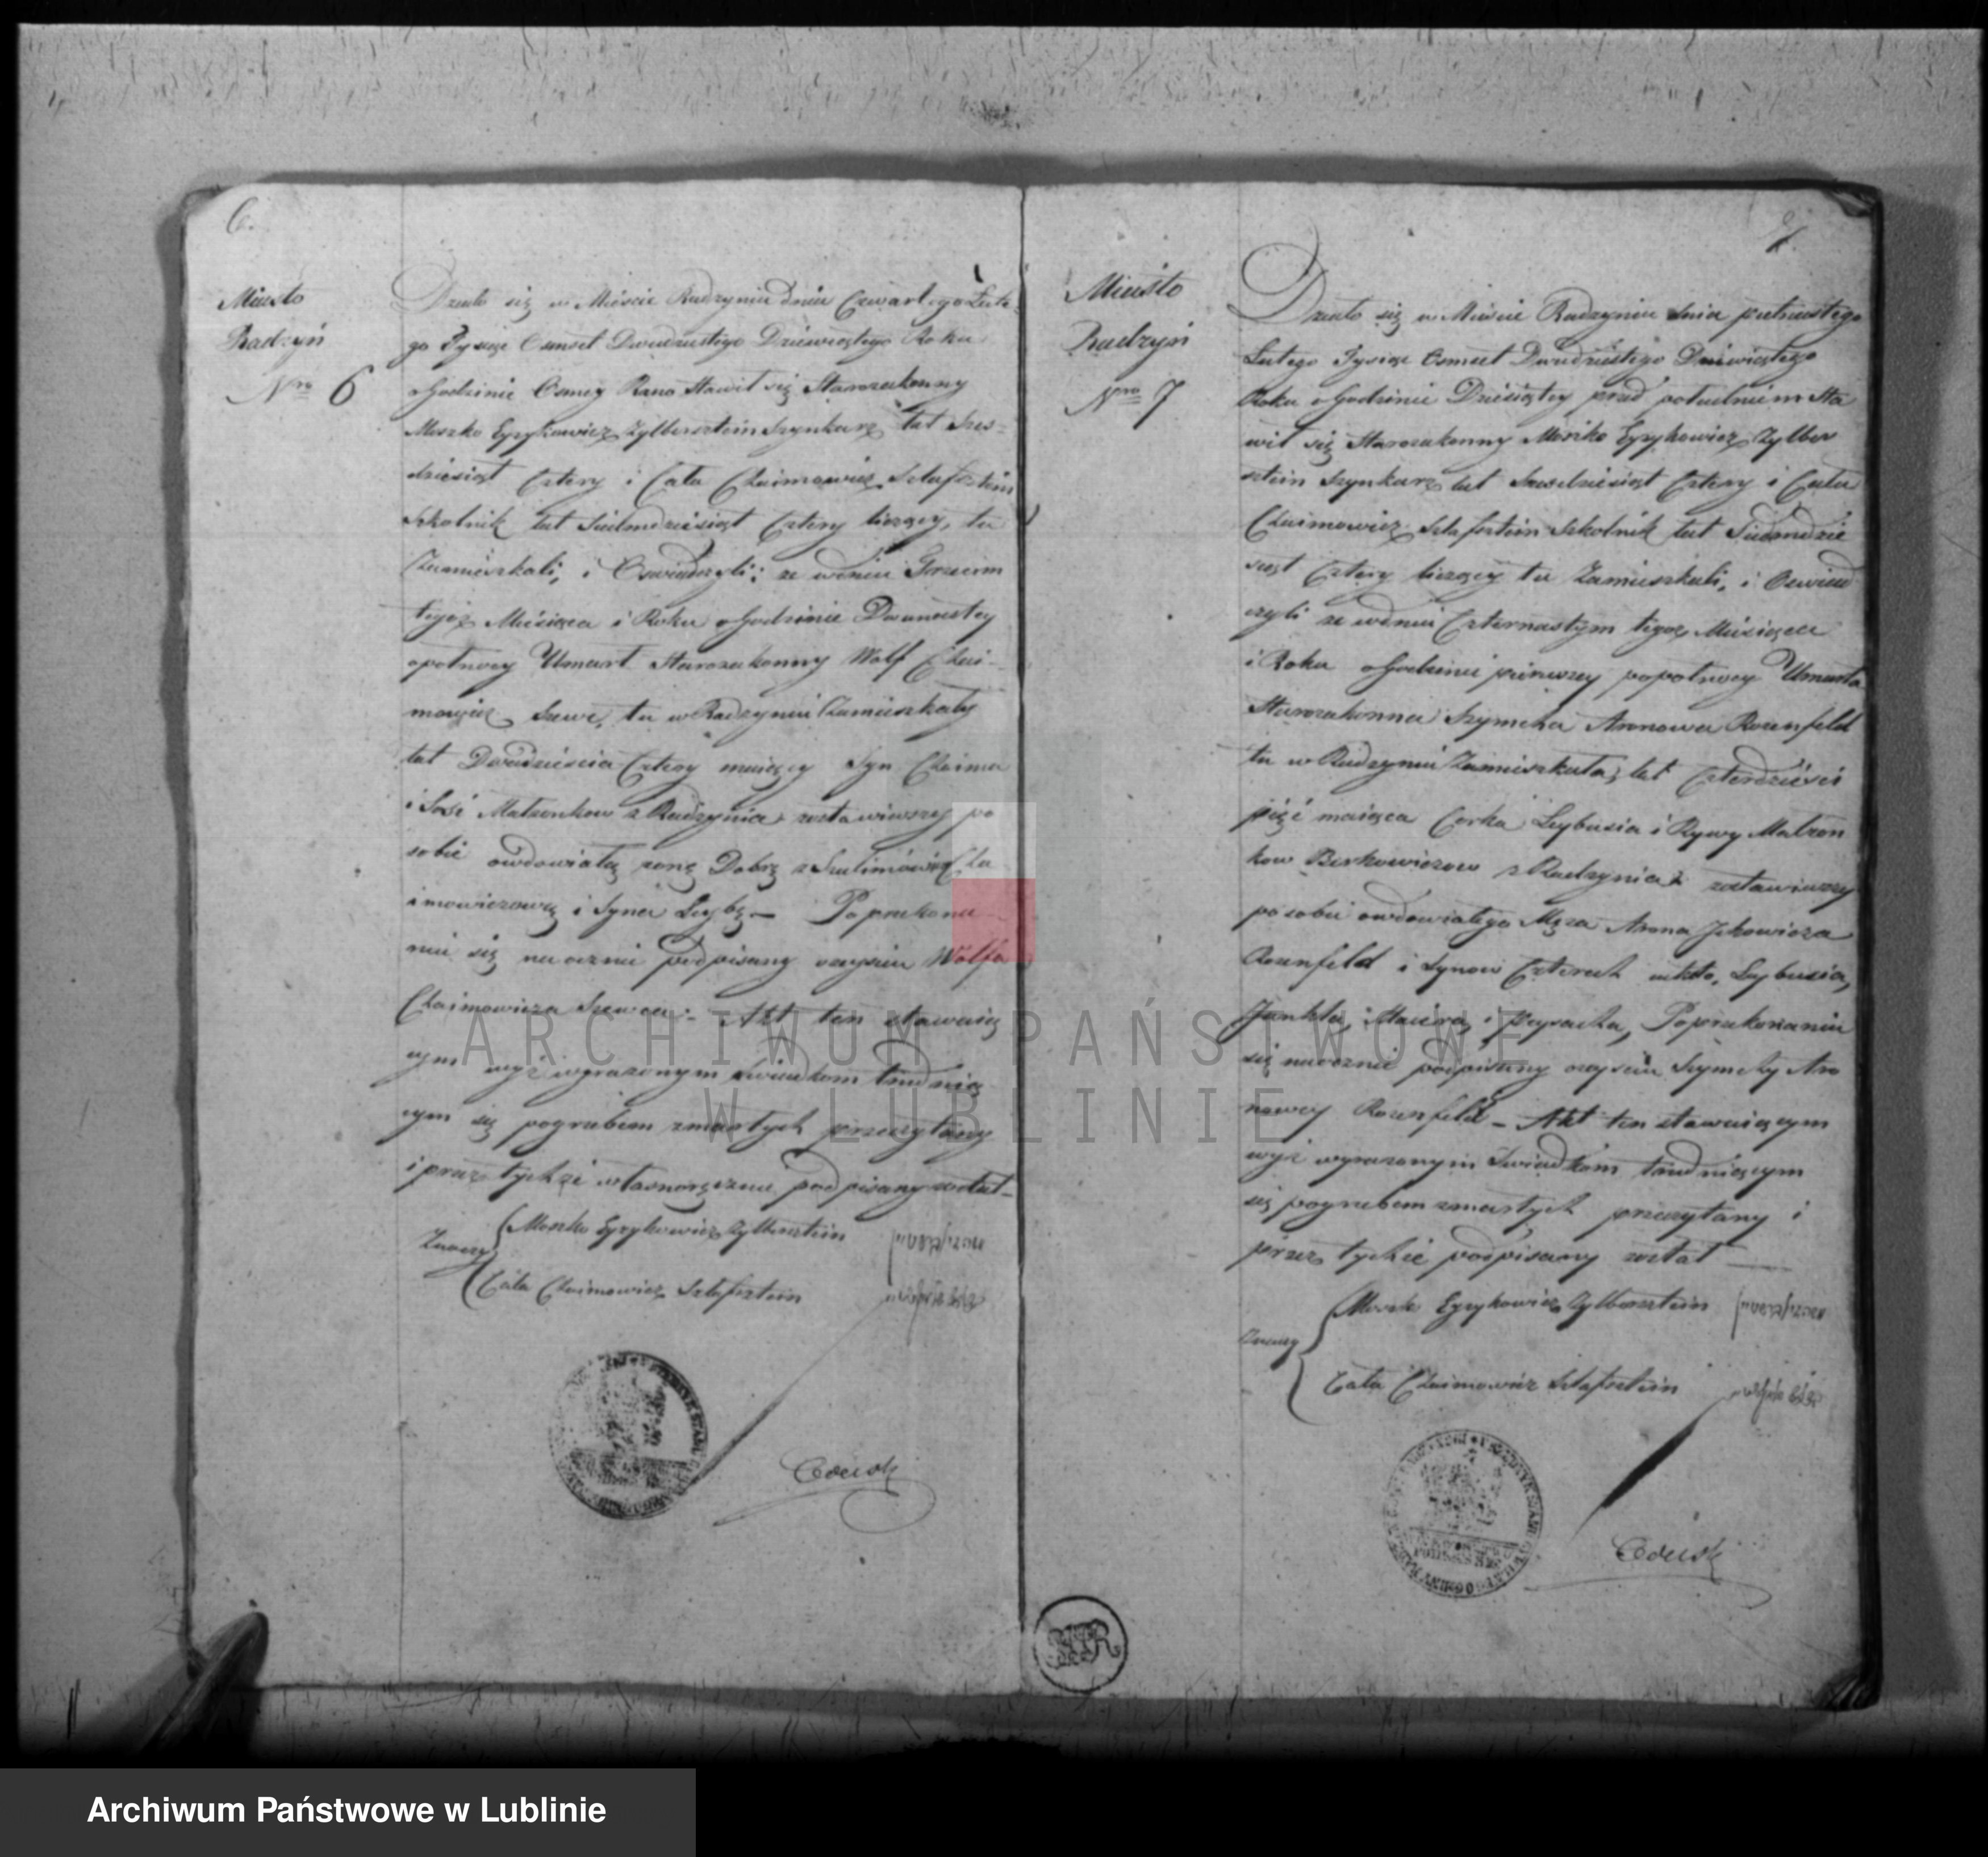 6.
Miasto
Radzyń
Nro 6
Działo się w Mieście Radzyniu dnia Czwartego Lute-
go Tysiąc Osmset Dwudziestego Dziewiątego Roku
o Godzinie Osmey Rano Stawił się Starozakonny
Moszko Eyzykowicz Zylbersztein Szynkarz lat Szes-
dziesiąt Cztery i Cala Chaimowicz Szlafsztein
Szkolnik lat Siedmdziesiąt Cztery liczący, tu
Zamieszkali, i Oswiadczyli; ze w dniu
tegoż Miesiąca i Roku o Godzinie Dwunastey
opołnocy Umarł Starozakonny Wolf Chai-
mowicz Szewc, tu w Radzyniu Zamieszkały
lat Dwadzieścia Cztery maiący Syn Chaima
i Małzonkow z Radzynia, zostawiwszy po
sobie owdowiałą zonę Dobrę z Szulimowicz Cha
imowiczową i Syna Leybę — Poprzekona
niu się naocznie podpisany zeyscia Wolfa
Chaimowicza Szewca:- Akt ten stawaią
cym wyż wyrazonym Swiadkom trudnią
cym się pogrzebem zmarłych przeczytany
i przez tychże własnoręcznie podpisany został-
Znaczy Moszko Eyzykowicz Zylbersztein
Cala Chaimowicz Szlafsztein
7.
Miasto
Radzyń
Nro 7
Działo się w Mieście Radzyniu dnia piętnastego
Lutego Tysiąc Osmset Dwudziestego Dziewiątego
Roku o Godzinie Dziesiątey przed południem Sta
wił się Starozakonny Moszko Eyzykowicz Zylber
sztein Szynkarz lat Szesdziesiąt Cztery i Cala
Chaimowicz Szlafsztein Szkolnik lat Siedmdzie
siąt Cztery liczący tu Zamieszkali, i Oswiad
czyli ze w dniu Czternastym tegoż Miesiąca
i Roku o Godzinie pierwszey popołnocy Umarła
Starozakonna Szymcha Aronowa Rozenfeld
tu w Radzyniu Zamieszkała, lat Czterdzieści
pięć maiąca Corka Leybusia i Rywy Małzon
kow Berkowiczow z Radzynia zostawiwszy
po sobie owdowiałego Męza Arona Jckowicza
Rozenfeld i Synow Czterech iakto, Leybusia,
Jankla, Maiera, i Peysacha, Poprzekonaniu
się naocznie podpisany zeyscia Szymchy Aro
nowey Rozenfeld - Akt ten stawaiącym
wyż wyrazonym Swiadkom trudniącym
się pogrzebem zmarłych przeczytany i
przez tychże podpisany został
Znaczy Moszk Eyzykowicz Zylbersztein
Cala Chaimowicz Szlafsztein
ARCHIWUM PAŃSTWOWE
W LUBLINIE
Archiwum Państwowe w Lublinie